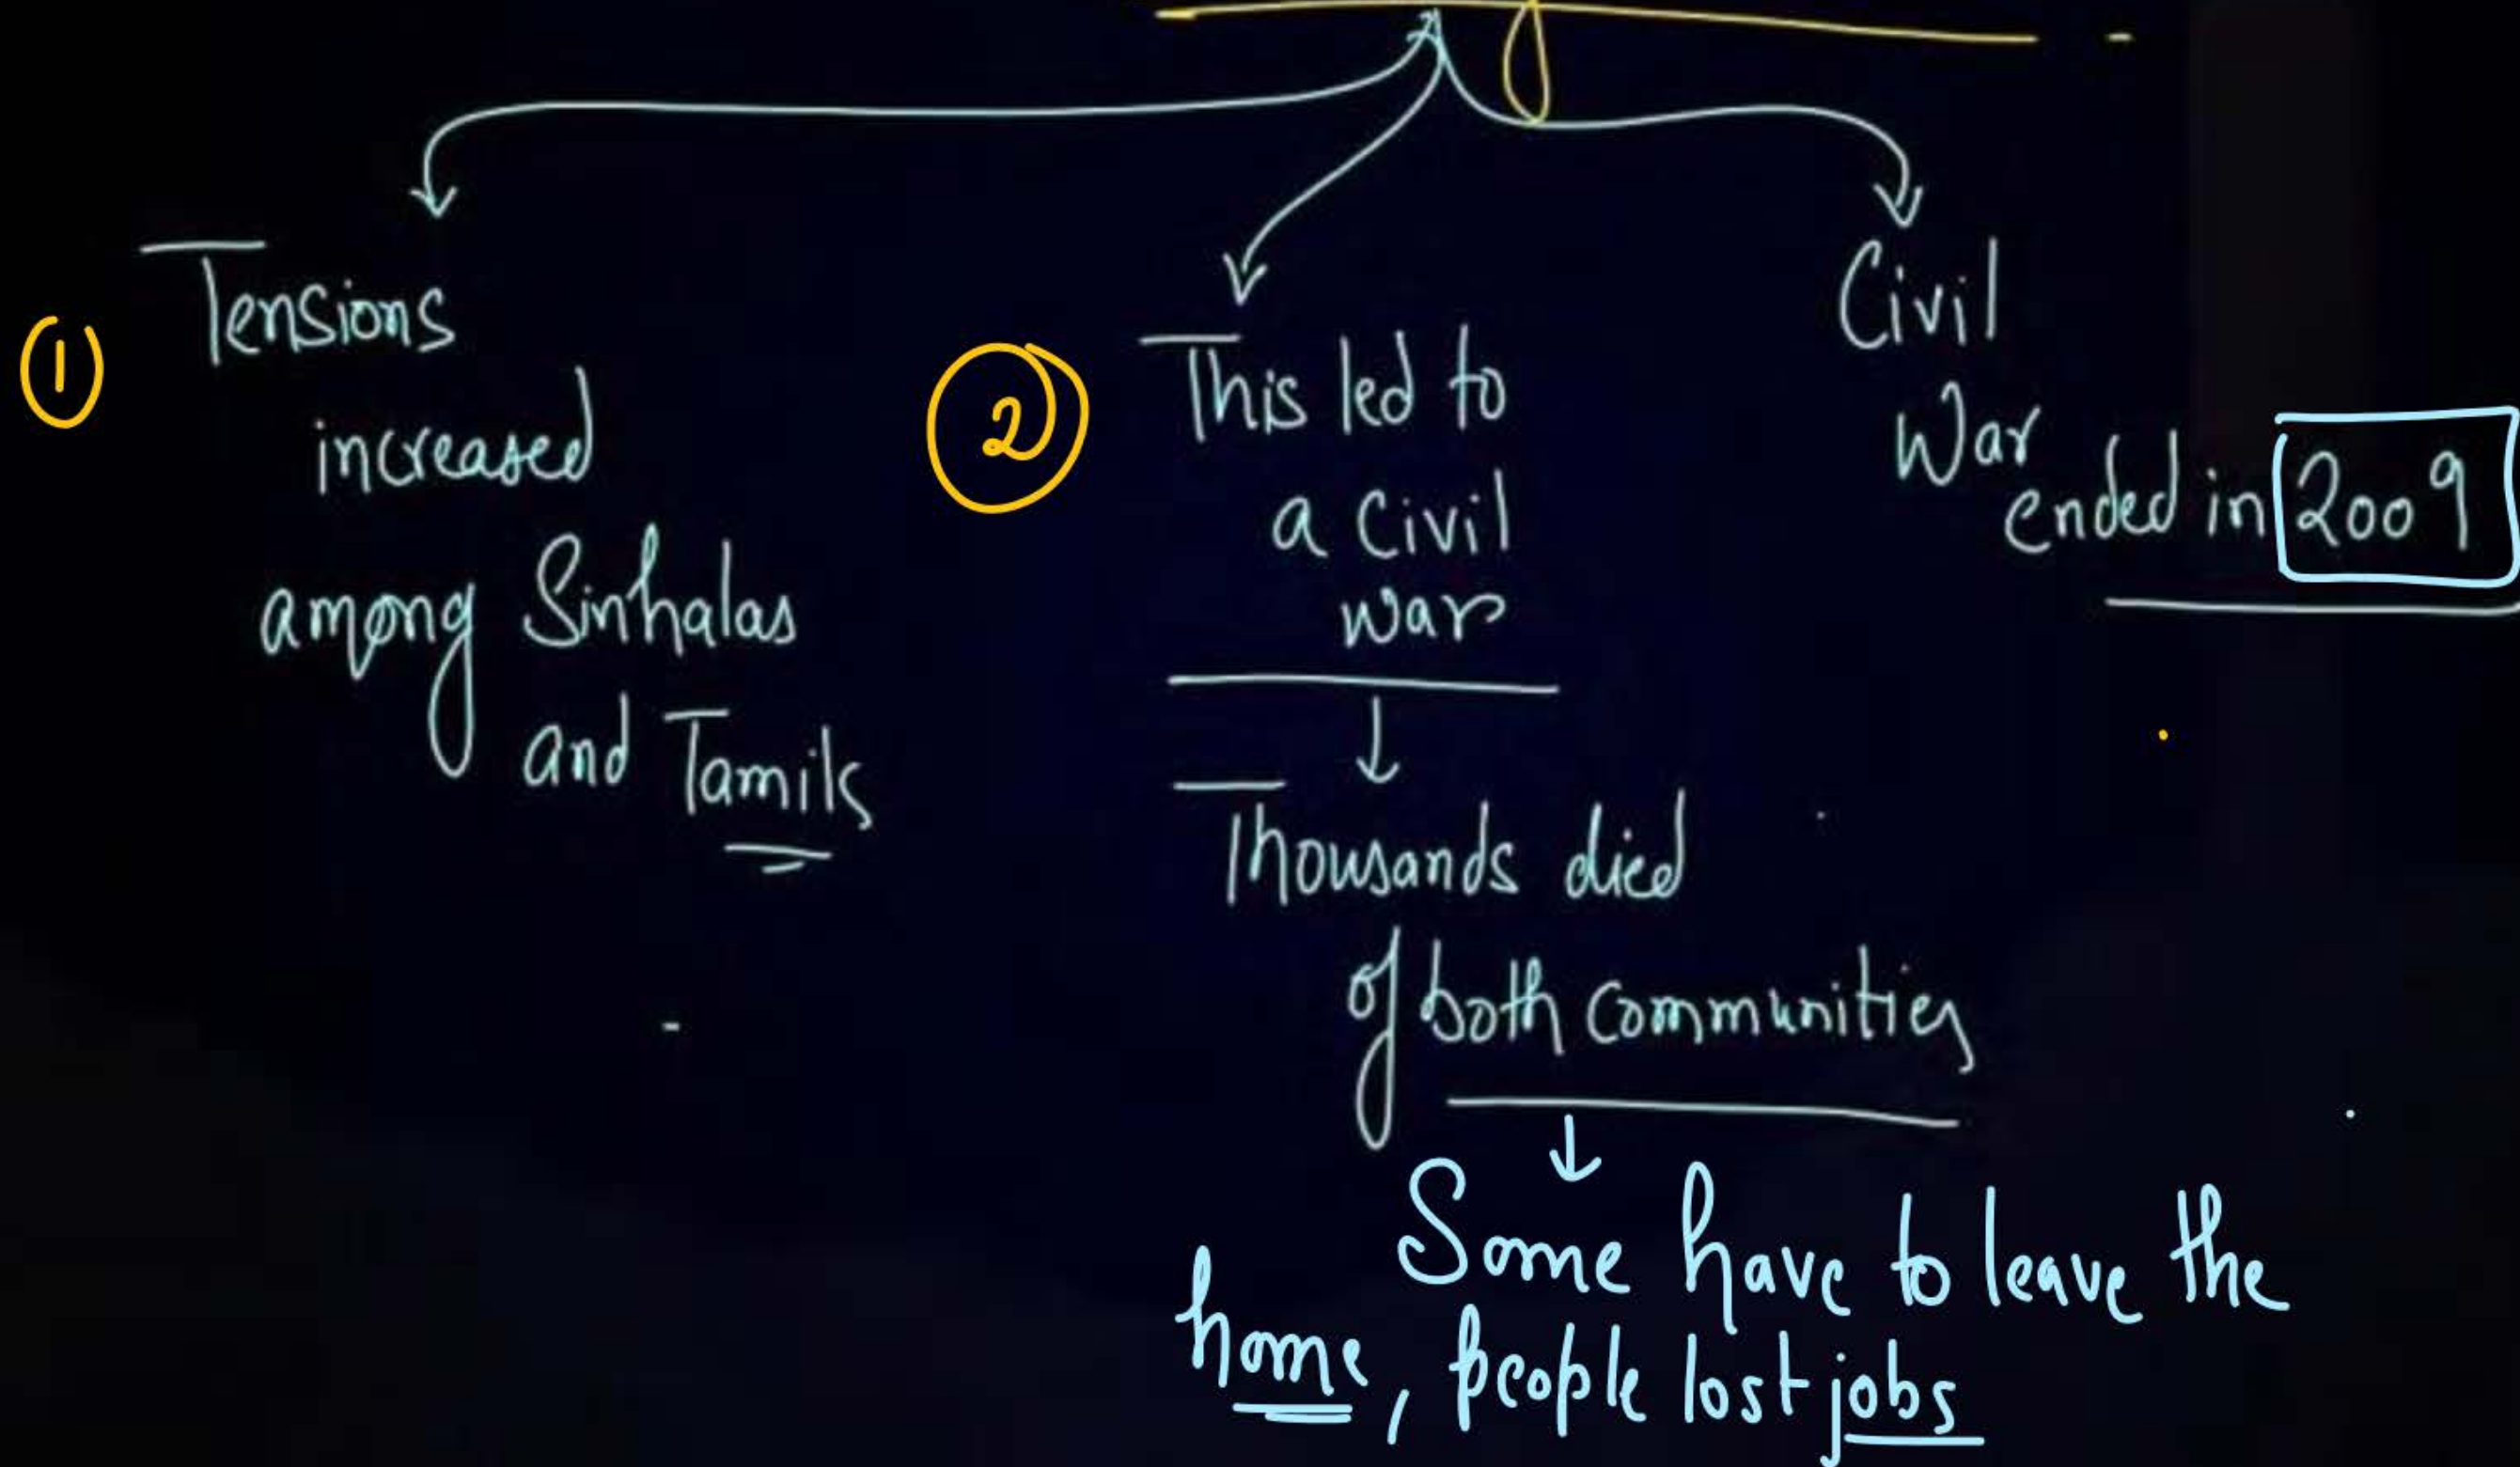 ①
Tensions
increased
among Sinhalas
and Tamils
②
This led to
a civil
war
Thousands died
of both communities
Some have to leave the
home, people lost jobs
Civil
War
ended in 2009